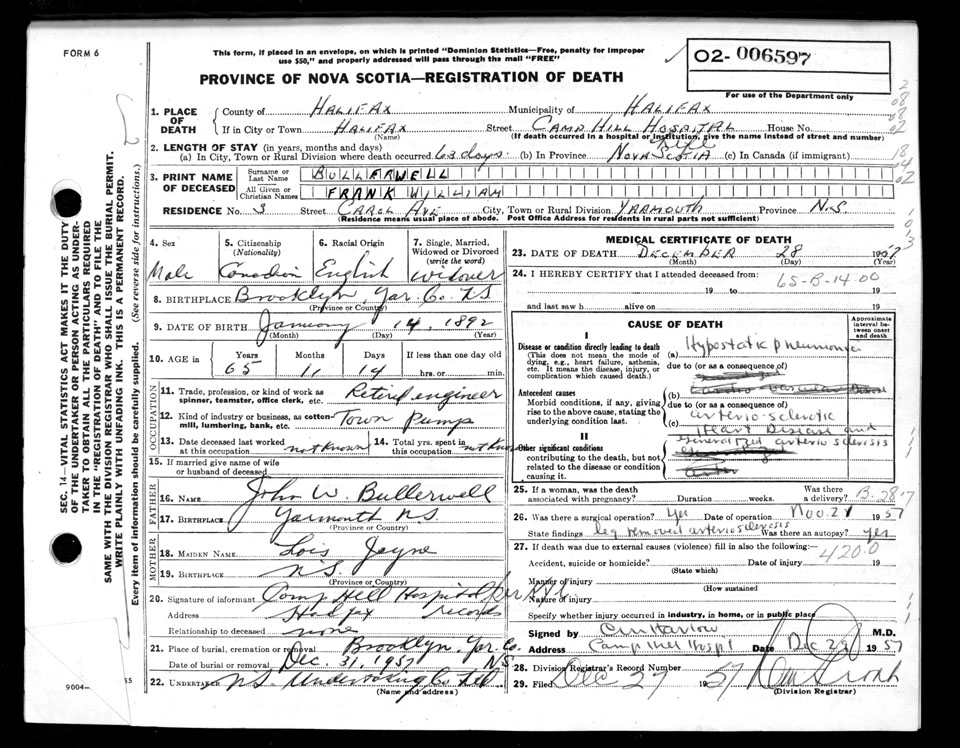 FORM 6
This form, if placed in an envelope, on which is printed "Dominion Statistics—Free, penalty for improper
use $50," and properly addressed will pass through the mails "FREE"
02- 006597
For use of the Department only
PROVINCE OF NOVA SCOTIA—REGISTRATION OF DEATH
1. PLACE OF DEATH
County of HALIFAX Municipality of HALIFAX
If in City or Town HALIFAX Street CAMP HILL HOSPITAL House No.
(Name) (If death occurred in a hospital or institution, give the name instead of street and number)
2. LENGTH OF STAY (in years, months and days) Life
(a) In City, Town or Rural Division where death occurred 63 days (b) In Province NOVA SCOTIA (c) In Canada (if immigrant)
3. PRINT NAME OF DECEASED
Surname or Last Name BULLERWELL
All Given or Christian Names FRANK WILLIAM
RESIDENCE No. 3 Street CAROL AVE City, Town or Rural Division YARMOUTH Province N.S.
(Residence means usual place of abode. Post Office Address for residents in rural parts not sufficient)
4. Sex
Male
5. Citizenship (Nationality)
Canadian
6. Racial Origin
English
7. Single, Married, Widowed or Divorced (write the word)
widower
8. BIRTHPLACE Brooklyn, Yar. Co. N.S.
(Province or Country)
9. DATE OF BIRTH January 14, 1892
(Month) (Day) (Year)
10. AGE in Years Months Days If less than one day old
65 11 14 hrs. or min.
OCCUPATION
11. Trade, profession, or kind of work as spinner, teamster, office clerk, etc. Retired engineer
12. Kind of industry or business, as cotton-mill, lumbering, bank, etc. Town Pump
13. Date deceased last worked at this occupation not known
14. Total yrs. spent in this occupation not known
15. If married give name of wife or husband of deceased
FATHER
16. NAME John W. Bullerwell
17. BIRTHPLACE Yarmouth N.S.
(Province or Country)
MOTHER
18. MAIDEN NAME Lois Jayne
19. BIRTHPLACE N.S.
(Province or Country)
20. Signature of informant Camp Hill Hospital records
Address Halifax
Relationship to deceased none
21. Place of burial, cremation or removal Brooklyn, Yar. Co. N.S.
Date of burial or removal Dec. 31, 1957
22. UNDERTAKER N.S. Undertaking Co. Ltd
(Name and address)
MEDICAL CERTIFICATE OF DEATH
23. DATE OF DEATH DECEMBER 28 1957
(Month) (Day) (Year)
24. I HEREBY CERTIFY that I attended deceased from: 65-B-14.00
19 to 19
and last saw h alive on 19
CAUSE OF DEATH
Approximate interval between onset and death
I
Disease or condition directly leading to death
(This does not mean the mode of dying, e.g., heart failure, asthenia, etc. It means the disease, injury, or complication which caused death.)
(a) Hypostatic pneumonia
due to (or as a consequence of)
Antecedent causes
Morbid conditions, if any, giving rise to the above cause, stating the underlying condition last.
(b)
due to (or as a consequence of)
(c) arterio-sclerotic
Heart Disease and
II
Other significant conditions
contributing to the death, but not related to the disease or condition causing it.
generalized arterio sclerosis
25. If a woman, was the death associated with pregnancy? Duration weeks. Was there a delivery?
B-28'7
26. Was there a surgical operation? Yes Date of operation Nov. 21 1957
State findings leg removed arteriosclerosis Was there an autopsy? yes
27. If death was due to external causes (violence) fill in also the following:— 420.0
Accident, suicide or homicide? Date of injury 19
(State which)
Manner of injury
(How sustained)
Nature of injury
Specify whether injury occurred in industry, in home, or in public place
Signed by M.D.
Address Camp Hill Hospt Date Dec 29 1957
28. Division Registrar's Record Number
29. Filed Dec 27 1957
(Division Registrar)
SEC. 14—VITAL STATISTICS ACT MAKES IT THE DUTY
OF THE UNDERTAKER OR PERSON ACTING AS UNDER-
TAKER TO OBTAIN ALL THE PARTICULARS REQUIRED
IN THE "REGISTRATION OF DEATH" AND TO FILE THE
SAME WITH THE DIVISION REGISTRAR WHO SHALL ISSUE THE BURIAL PERMIT.
WRITE PLAINLY WITH UNFADING INK. THIS IS A PERMANENT RECORD.
Every item of information should be carefully supplied. (See reverse side for instructions.)
9004—